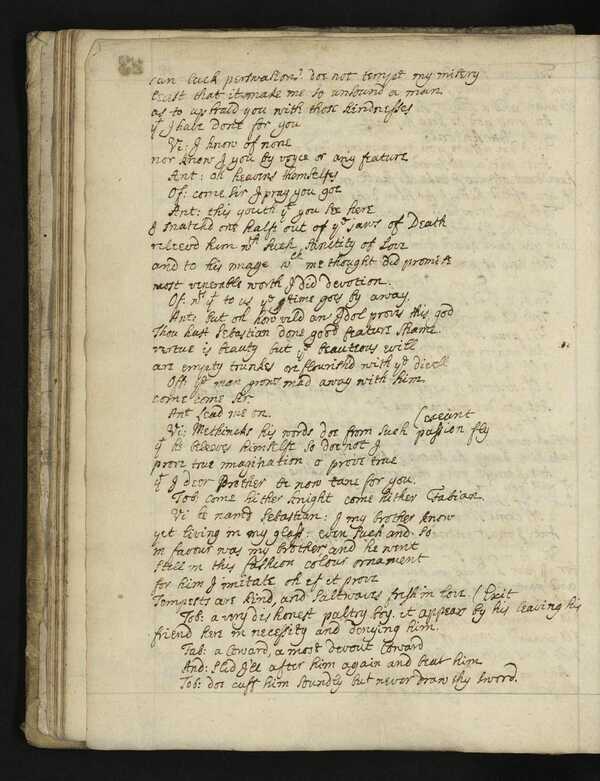 can Lack perswasions doe not tempt my misery
Least that it make me so unsound a man
as to upbraid you with those kindnesses
yt I have done for you
Vi: I know of none
nor know I you by voyce or any feature
Ant: oh heavens themselfs
Of: come Sir I pray you goe
Ant: this youth yt you see here
I snatchd one halfe out of ye jaws of Death
releevd him wth such Sanctity of Love
and to his image wch me thought did promise
most venerable worth I did devotion.
Of: wt yt to us ye time goes by away.
Ant: But oh how vild an Idol proves this god
Thou hast Sebastian done good feature Shame.
vertue is beauty but ye beautious evill
are empty trunkes oreflourishd with ye divell
Off: ye man grows mad away with him
come come Sir.
Ant: Lead me on. (exeunt
Vi: Methinks his words doe from such passion fly
yt he beleeves himselfe so doe not I
prove true imagination o prove true
yt I deer Brother be now tane for you.
Tob: come hither knight come hither Fabian.
Vi: he namd Sebastian: I my brother know
yet living in my glass: even such and so
in favour was my brother and he went
still in this fashion colour ornament
for him I imitate oh if it prove
Tempests are kind, and Saltwaves fresh in love (Exit
Tob: a very dishonest paltry boy. it appears by his leaving his
friend here in necessity and denying him.
Fab: a Coward, a most devout Coward
And: Slid I'le after him again and beat him
Tob: doe cuff him soundly but never draw thy sword.